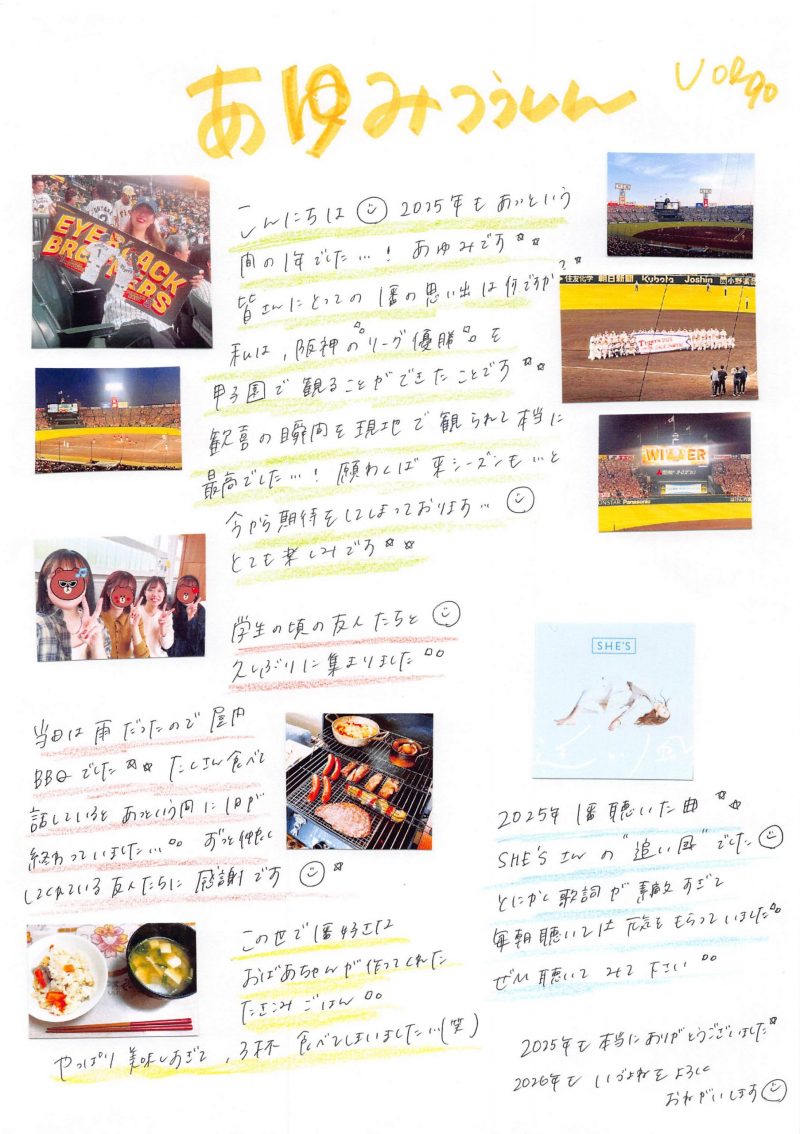 あゆみつうしん
vol.90
こんにちは 2025年もあっという
間の1年でした…! あゆみです☆☆
皆さんにとっての1番の思い出は何ですか?
私は、阪神の リーグ優勝 を
甲子園で観ることができたことです☆☆
歓喜の瞬間を現地で観られて本当に
最高でした…! 願わくば来シーズンも…と
今から期待をしてしまっております…
とても楽しみです☆☆
EYE BLACK
BROTHERS
住友化学 朝日新聞 Kubota Joshin 小野薬品
WINNER
Panasonic
学生の頃の友人たちと
久しぶりに集まりました
当日は雨だったので屋内
BBQでした☆☆ たくさん食べて
話しているとあっという間に1日が
終わっていました… ずっと仲良く
してくれている友人たちに感謝です ☆
この世で1番好きな
おばあちゃんが作ってくれた
たきこみごはん
やっぱり美味しすぎて、3杯 食べてしまいました…(笑)
SHE'S
追い風
2025年 1番聴いた曲☆☆
SHE'Sさんの"追い風"でした
とにかく歌詞が素敵すぎて
毎朝聴いては元気をもらっていました
ぜひ聴いてみて下さい
2025年も本当にありがとうございました☆
2026年もいづよねをよろしく
おねがいします